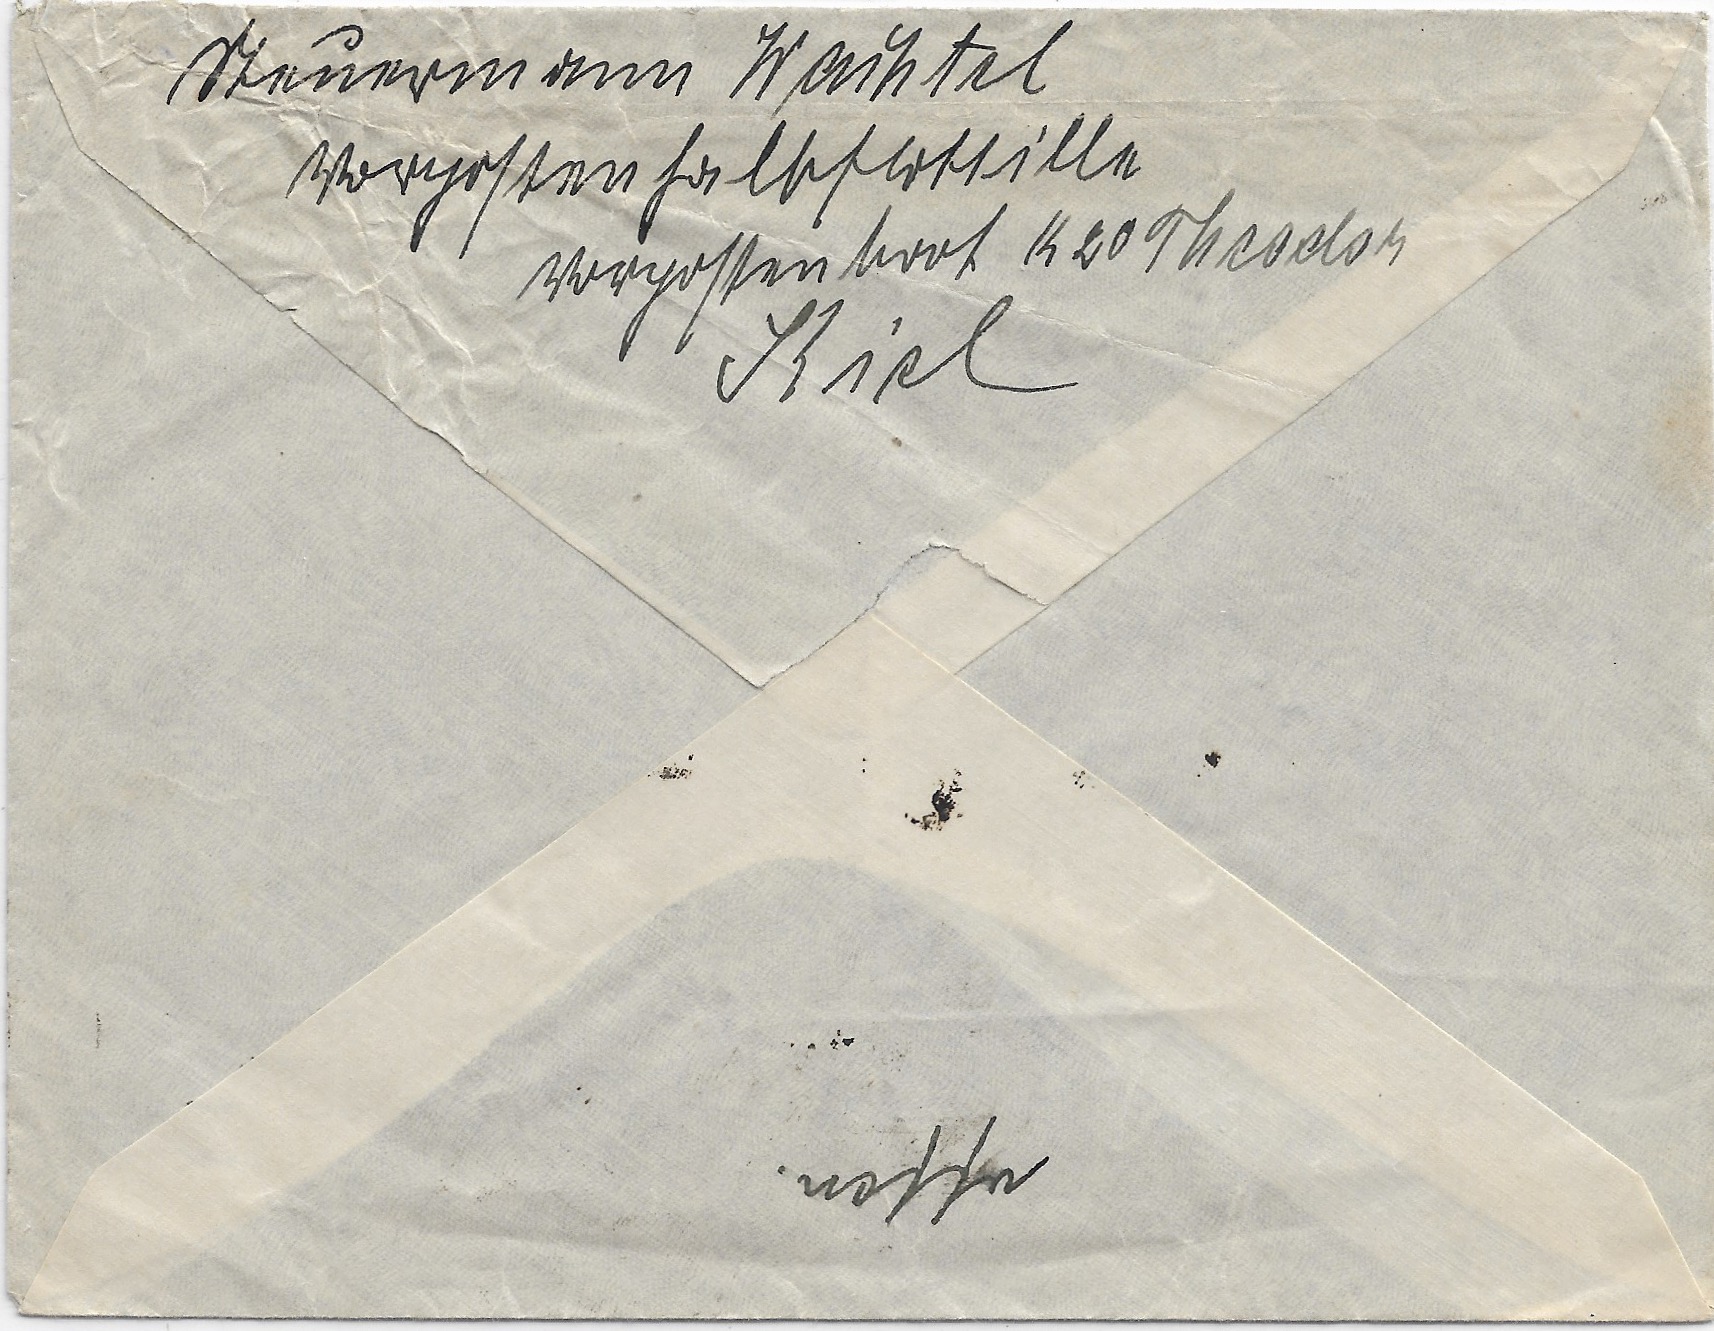 Steuermann Wachtel
Vorpostenhalbflottille
Vorpostenboot K 20 Theodor
Kiel
offen.